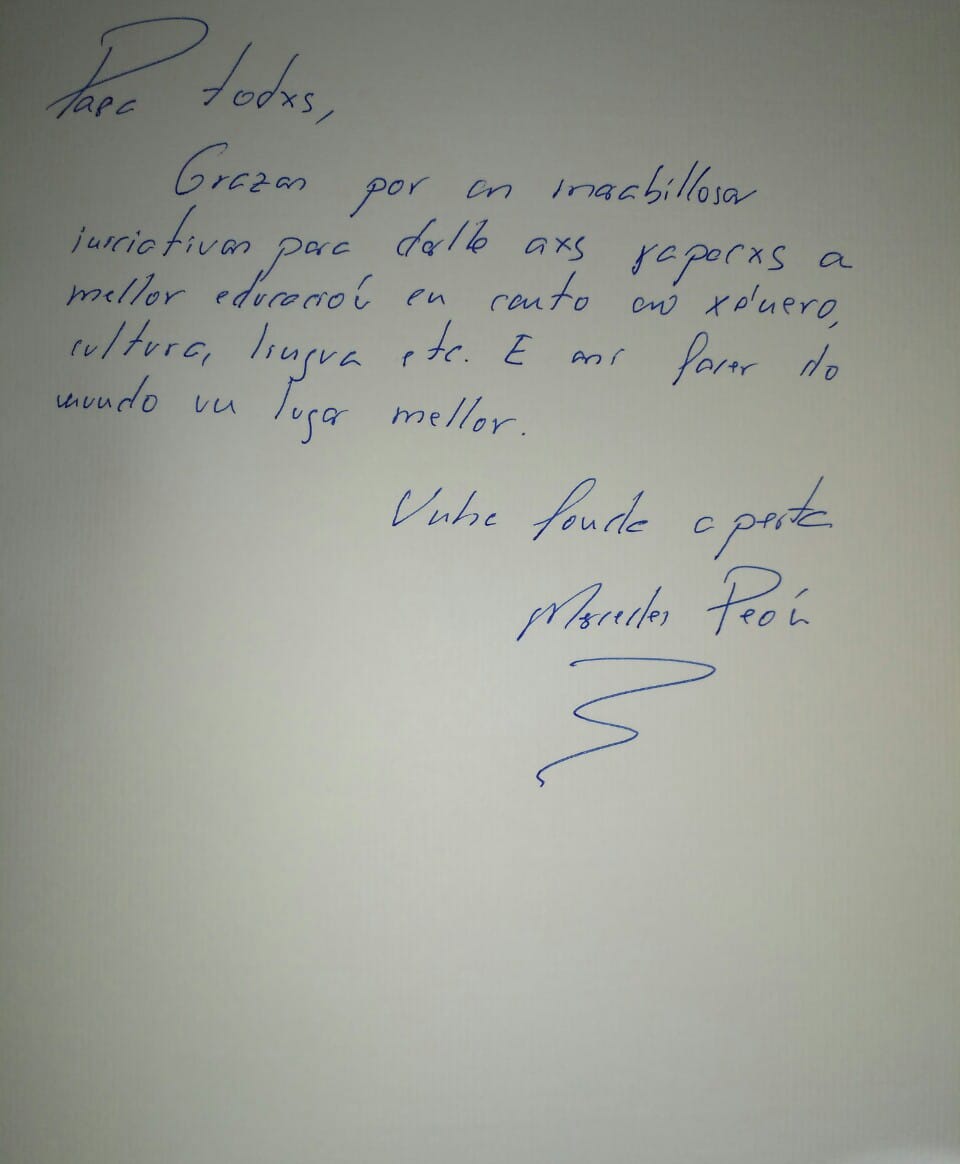 Para todxs,
Grazas por as marabillosas
iniciativas para darlle axs rapacxs a
mellor educación en canto ao xénero,
cultura, lingua etc. E así facer do
mundo un lugar mellor.
Unha fonda aperta
Mercedes Peón